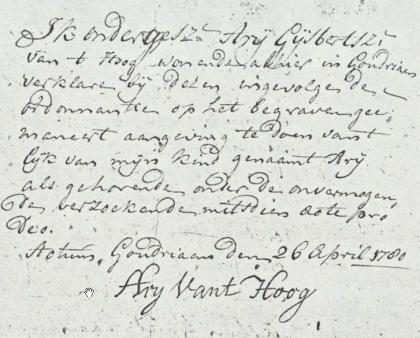 Ik ondergesz: Arij Gijsbertsz:
van 't Hoog wonende alhier in Goudriaan
verklare bij dezen ingevolge de
ordonnantie op het begraven gee-
maneert aangeving te doen van t
lijk van mijn kind genaamt Ary
als gehorende onder de onvermogen,
de verzoekende mitsdien acte pro
Deo.
Actum, Goudriaan den 26 April 1780
Ary Vant Hoog